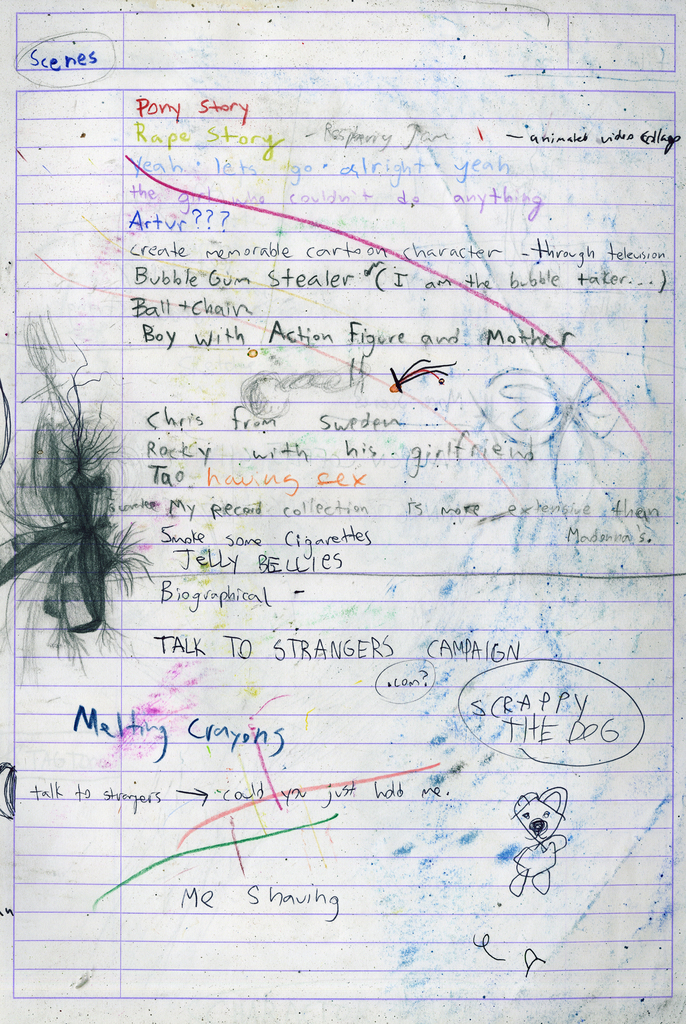 Scenes
Pony Story
Rape Story - Raspberry Jam - animated video collage
Yeah · lets go · alright · yeah
the girl who couldn't do anything
Artur???
create memorable cartoon character - through television
Bubble Gum Stealer (I am the bubble taker...)
Ball + Chain
Boy with Action Figure and Mother
Chris from Sweden
Rocky with his girlfriend
Tao having sex
My Record collection is more extensive than
Madonna's.
Smoke some Cigarettes
JELLY BELLIES
Biographical -
TALK TO STRANGERS CAMPAIGN
.com?
SCRAPPY
THE DOG
Melting Crayons
talk to strangers → could you just hold me.
Me Shaving